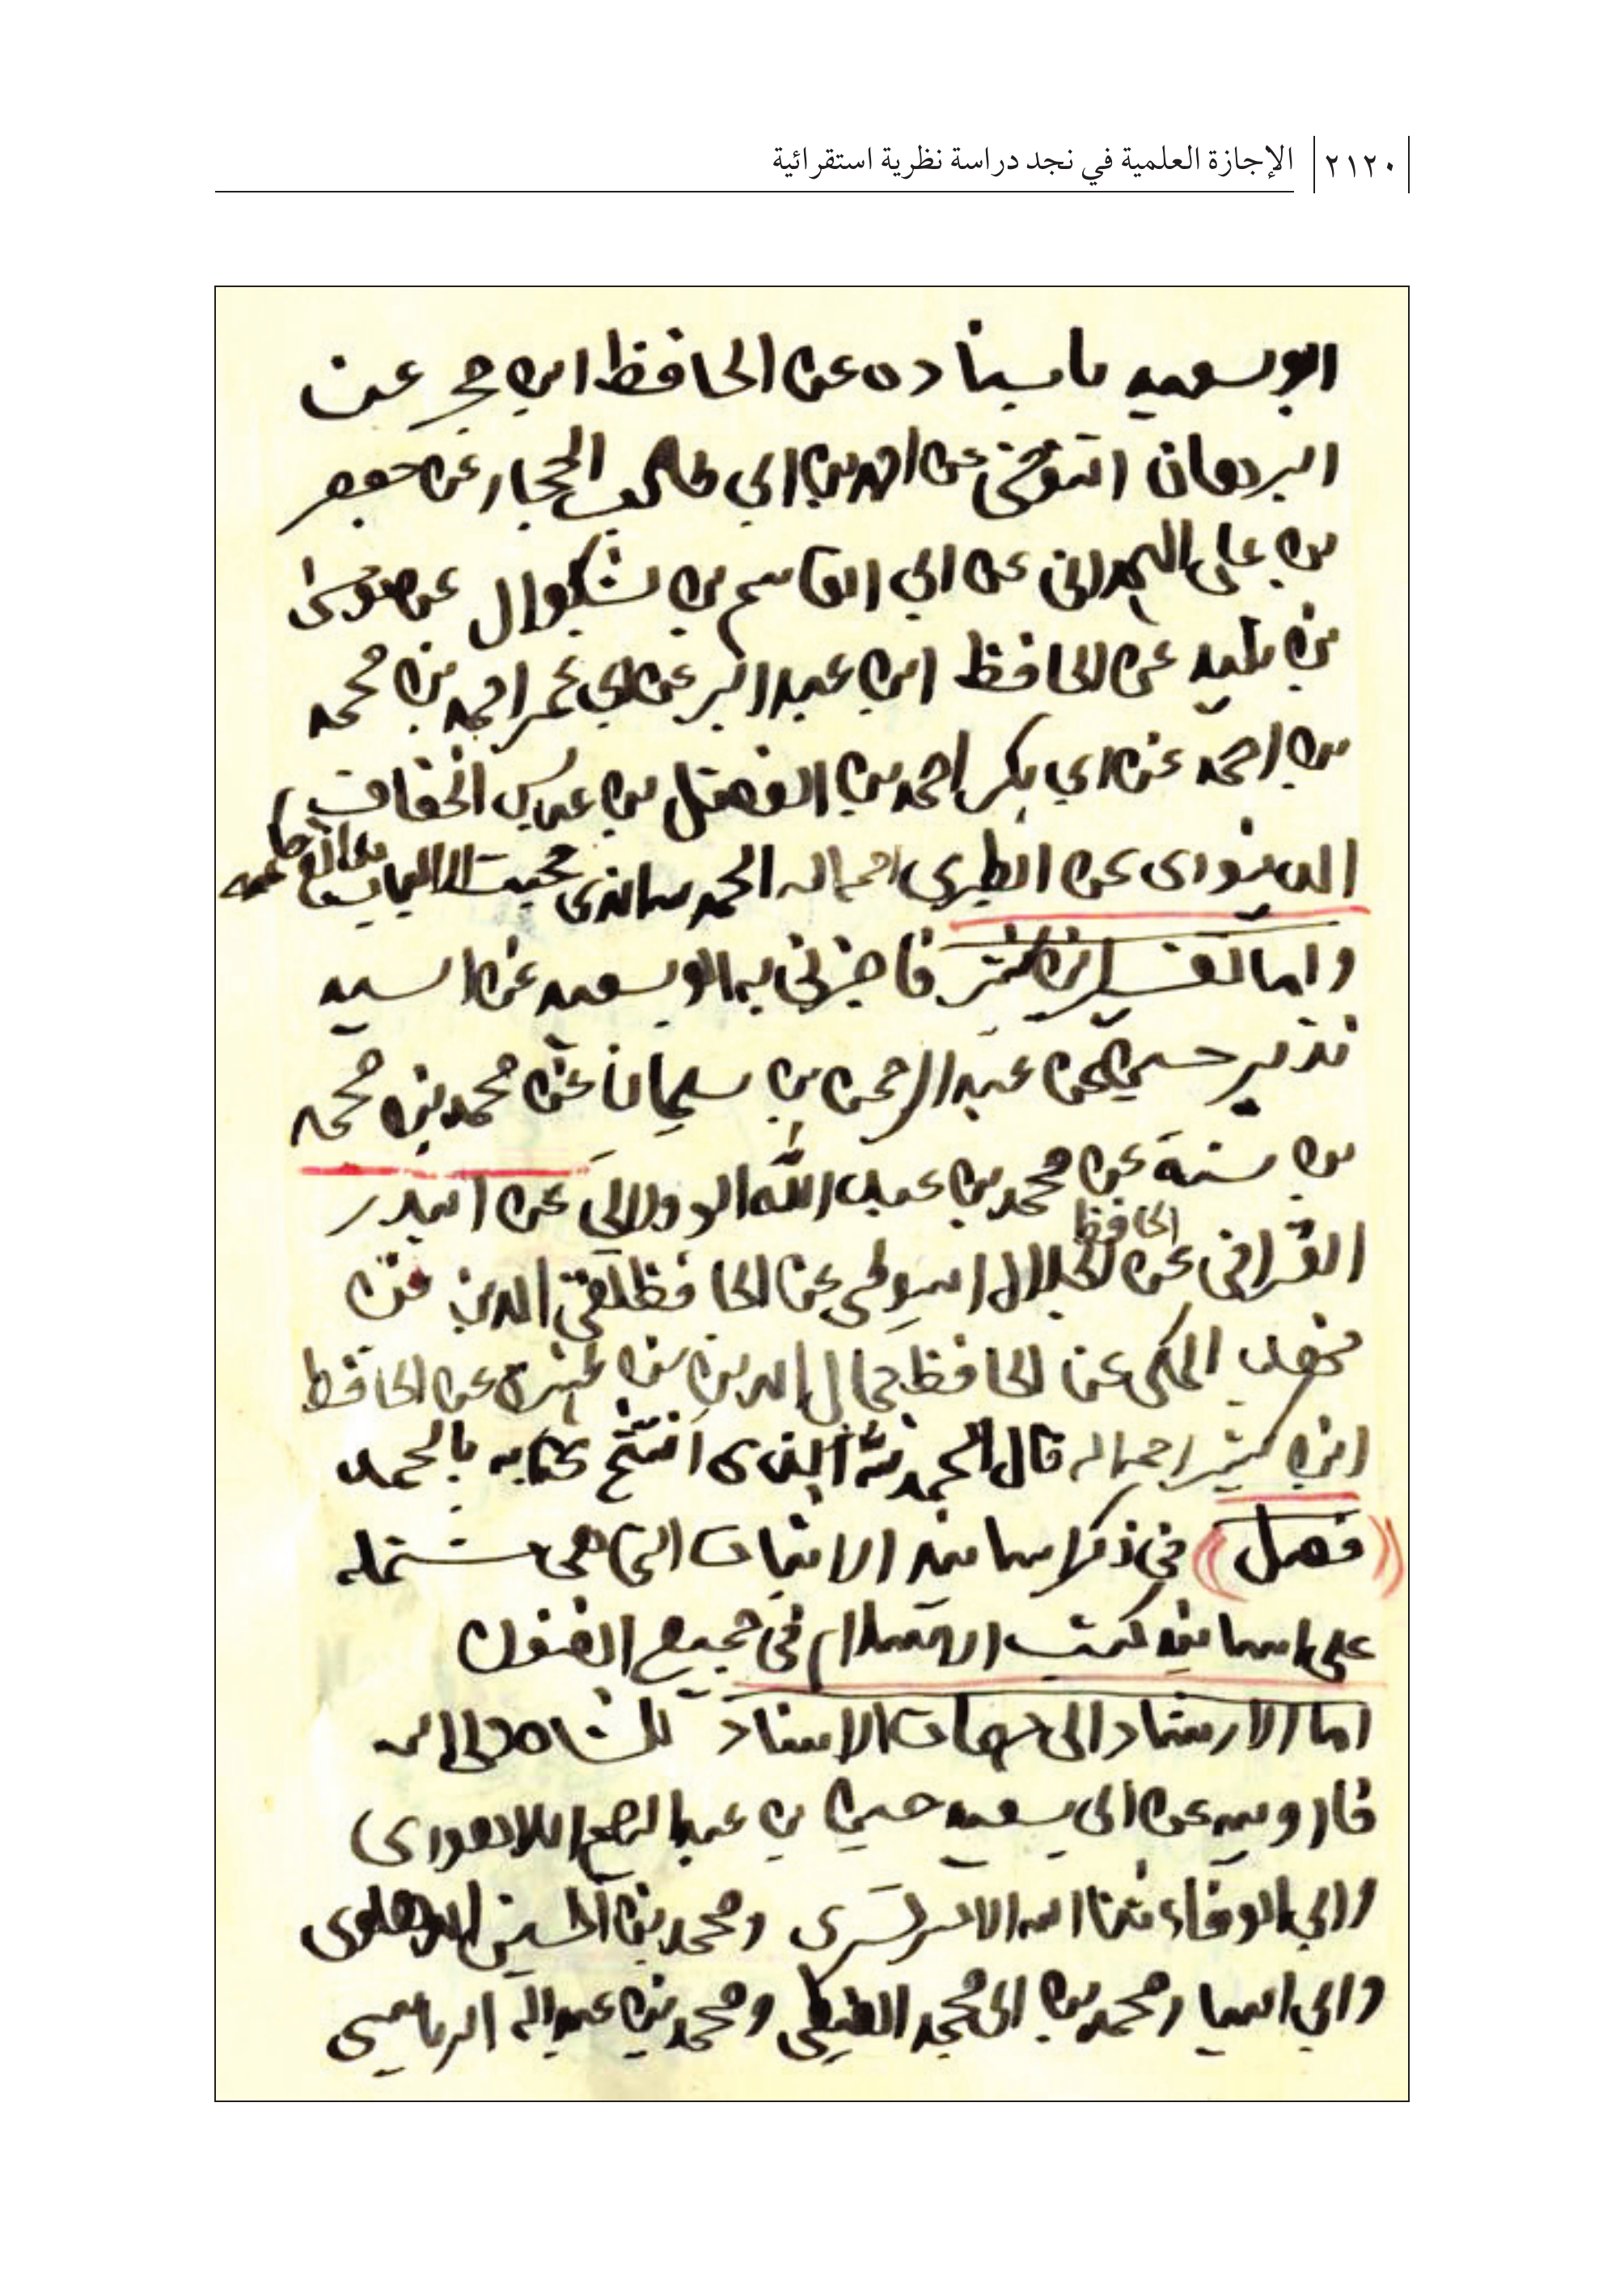 ٢١٢٠ الإجازة العلمية في نجد دراسة نظرية استقرائية
ابو سعيد باسناده عن الحافظ ابن حجر عن
البرهان التنوخي عن احمد بن ابي طالب الحجار عن جعفر
بن علي الهمداني عن ابي القاسم بن بشكوال عن موسى
بن تليد عن الحافظ ابن عبد البر عن ابي عمر احمد بن محمد
بن احمد عن ابي بكر احمد بن الفضل بن عباس الخفاف
الدينوري عن الطبري رحمه الله الحمد لله الذي حجبت الالباب
واما تفسير ابن كثير فاجزني به ابو سعيد عن السيد
نذير حسين عن عبد الرحمن بن سليمان عن محمد بن محمد
بن سنة عن محمد بن عبد الله الوولالي عن البدر
القرافي عن الحافظ الجلال السيوطي عن الحافظ تقي الدين بن
فهد المكي عن الحافظ جمال الدين بن ظهيرة عن الحافظ
ابن كثير رحمه الله قال الحمد لله الذي افتتح كتابه بالحمد
(( فصل )) في ذكر اسانيد الاثبات التي هي مشتمله
على اسانيد كتب الاسلام في جميع الفنون
اما الارشاد الى جهات الاسناد للشاه ولي الله
فارويه عن ابي سعيد حسين بن عبد الرحيم اللاهوري
وابي الوفاء ثناء الله الامرتسري ومحمد بن الحسين الدهلوي
وابي اليسار محمد بن ابي محمد الطبيبي ومحمد بن عبد الله الرياسي